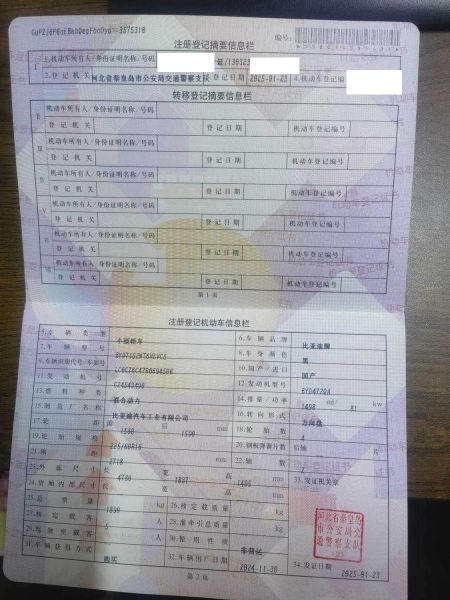 3575310
注册登记摘要信息栏
编号:
1.机动车所有人/身份证明名称/号码
2.登记机关 河北省秦皇岛市公安局交通警察支队 登记日期 2025-01-23 4.机动车登记编号
转移登记摘要信息栏
机动车所有人/身份证明名称/号码
登记机关 登记日期 机动车登记编号
机动车所有人/身份证明名称/号码
登记机关 登记日期 机动车登记编号
机动车所有人/身份证明名称/号码
登记机关 登记日期 机动车登记编号
机动车所有人/身份证明名称/号码
登记机关 登记日期 机动车登记编号
机动车所有人/身份证明名称/号码
登记机关 登记日期 机动车登记编号
机动车所有人/身份证明名称/号码
登记机关 登记日期 机动车登记编号
第1页
注册登记机动车信息栏
5.车辆类型 小型轿车 6.车辆品牌 比亚迪牌
7.车辆型号 8.车身颜色 黑
9.车辆识别代号/车架号 10.国产/进口 国产
11.发动机号 12.发动机型号 BYD472QA
13.燃料种类 混合动力 14.排量/功率 1498 ml/ 81 kw
15.制造厂名称 比亚迪汽车工业有限公司 16.转向形式 方向盘
17.轮距 前 后 1590 mm 18.轮胎数 4
19.轮胎规格 225/60R16 20.钢板弹簧片数 后轴 片
21.轴距 2718 mm 22.轴数
23.外廓尺寸 长 4780 宽 1837 高 1495 mm 33.发证机关章
24.货箱内部尺寸 长 宽 高 mm
25.总质量 kg 26.核定载质量 kg
27.核定载客 5 人 28.准牵引总质量 kg
29.驾驶室载客 人 30.使用性质 非营运
31.车辆获得方式 购买 32.车辆出厂日期 2024-11-30 34.发证日期 2025-01-23
河北省秦皇岛
市公安局交
通警察支队
第2页